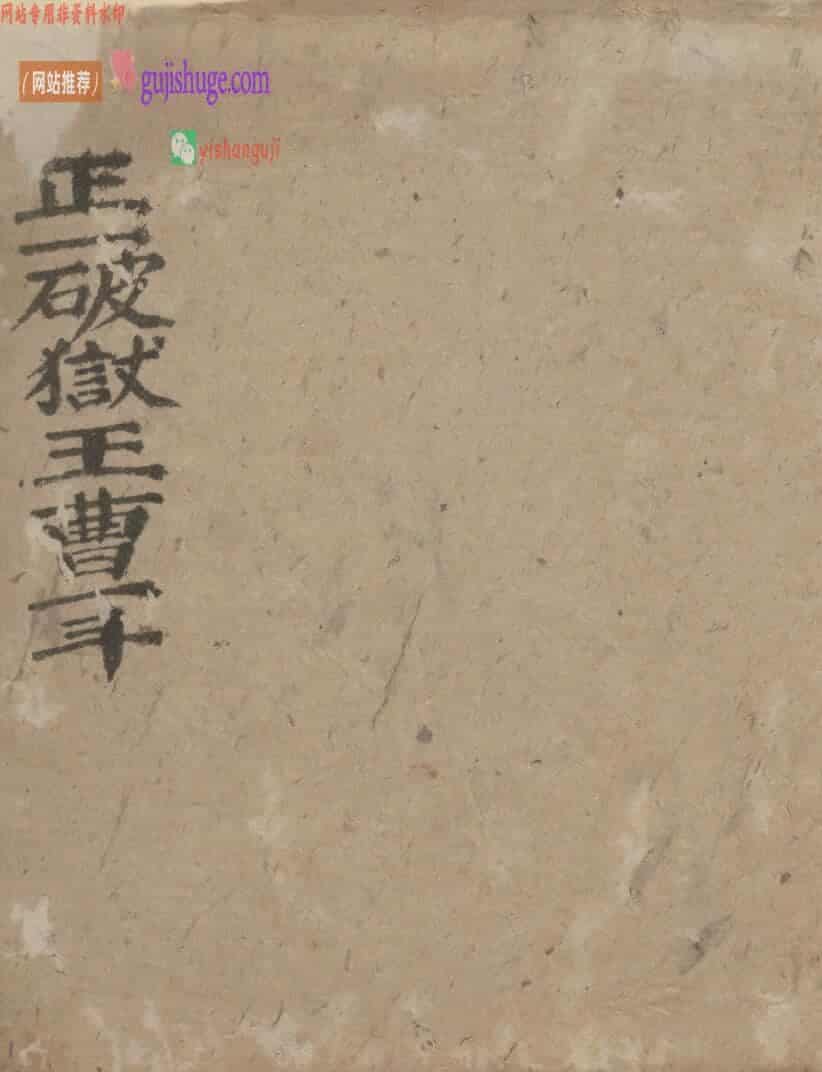 网站专用非资料水印
（网站推荐）
gujishuge.com
yishanguji
正一破獄王曹一